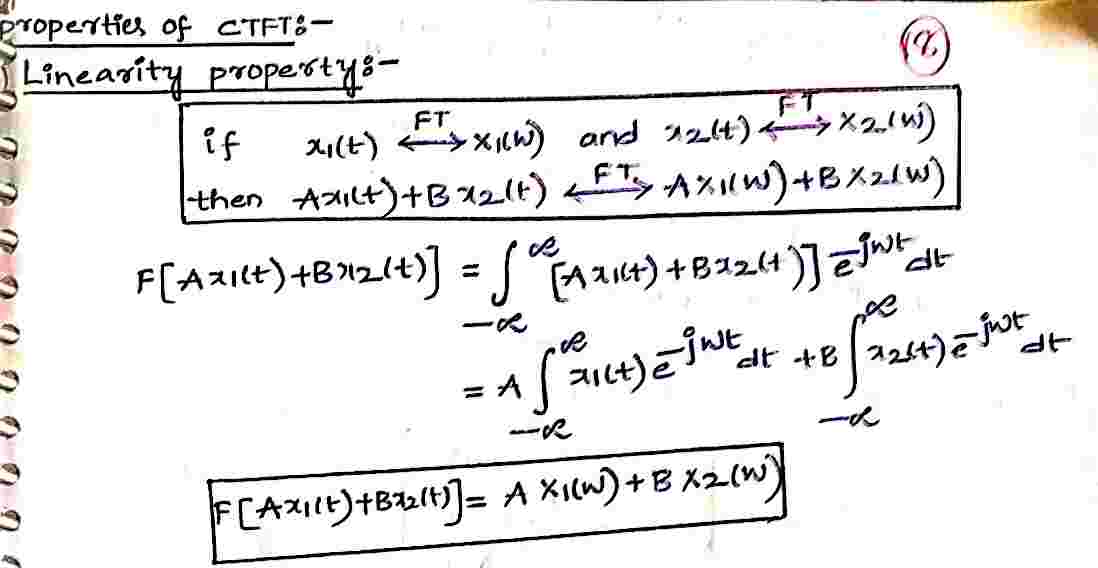 properties of CTFT:-
(18)
Linearity property:-
if x₁(t) ⟷FT X₁(w) and x₂(t) ⟷FT X₂(w)
then Ax₁(t)+Bx₂(t) ⟷FT. AX₁(w)+BX₂(w)
F[Ax₁(t)+Bx₂(t)] = ∫_{-∞}^{∞} [Ax₁(t)+Bx₂(t)] e^{-jwt} dt
= A ∫_{-∞}^{∞} x₁(t) e^{-jwt} dt + B ∫_{-∞}^{∞} x₂(t) e^{-jwt} dt
F[Ax₁(t)+Bx₂(t)] = A X₁(w) + B X₂(w)